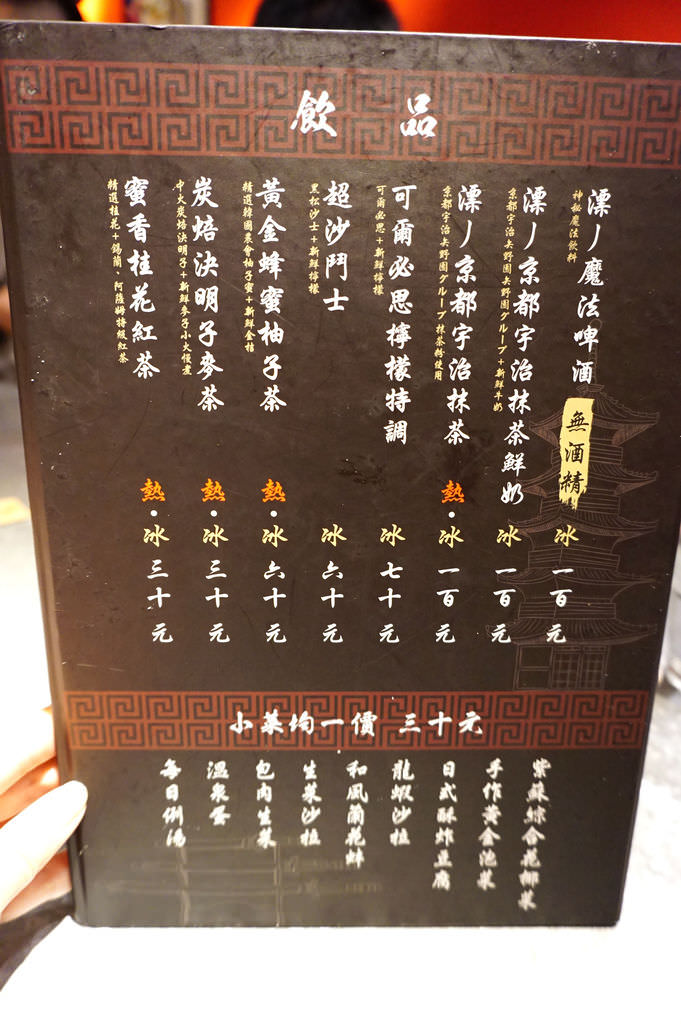 飲 品
漂丿魔法啤酒 無酒精 冰 一百元
神秘魔法飲料
漂丿京都宇治抹茶鮮奶 冰 一百元
京都宇治矢野園グループ+新鮮牛奶
漂丿京都宇治抹茶 熱·冰 一百元
京都宇治矢野園グループ抹茶粉使用
可爾必思檸檬特調 冰 七十元
可爾必思+新鮮檸檬
超沙鬥士 冰 六十元
黑松沙士+新鮮檸檬
黃金蜂蜜柚子茶 熱·冰 六十元
精選韓國農會柚子蜜+新鮮金桔
炭焙決明子麥茶 熱·冰 三十元
中火炭焙決明子+新鮮麥子小火慢煮
蜜香桂花紅茶 熱·冰 三十元
精選桂花+錫蘭、阿薩姆特級紅茶
小菜均一價 三十元
紫蘇綜合花椰菜
手作黃金泡菜
日式酥炸豆腐
龍蝦沙拉
和風蘭花蚌
生菜沙拉
包肉生菜
溫泉蛋
每日例湯